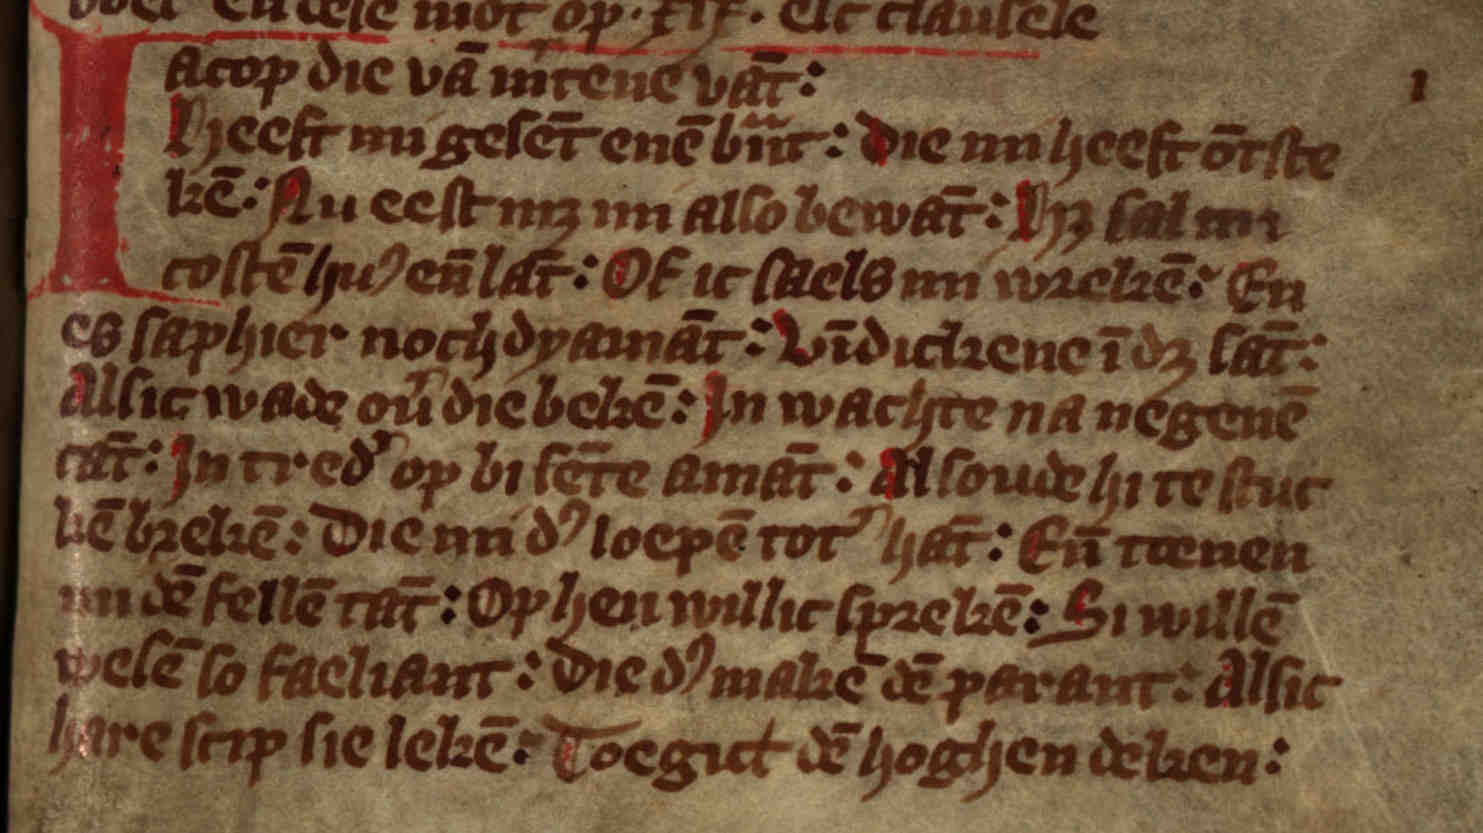 boec en dese moet op · xix · elc clausele
Iacop die vā intene vāt:
Heeft mi gesēt enē bāt: Die mi heeft ōtste
kē: Nu eest mȝ mi also bewāt: Hȝ sal mi
costē huꝰ eñ lāt: Of ic saels mi wrekē: En
es saphier noch dyamāt: Vīdickene ī dȝ sāt:
Alsic wade ouͬ die bekē: In wachte na negenē
tāt: In tredͬ op bi sēte amāt: Al soude hi te stuc
kē brekē: Die mi dꝰ loepē totͬ hāt: Eñ toenen
mi dē fellē tāt: Op hen willic sprekē: Si willē
wesē so faeliant: Die dꝰ makē dē parant: Alsic
hare scip sie lekē: Toegict dē hoghen deken: